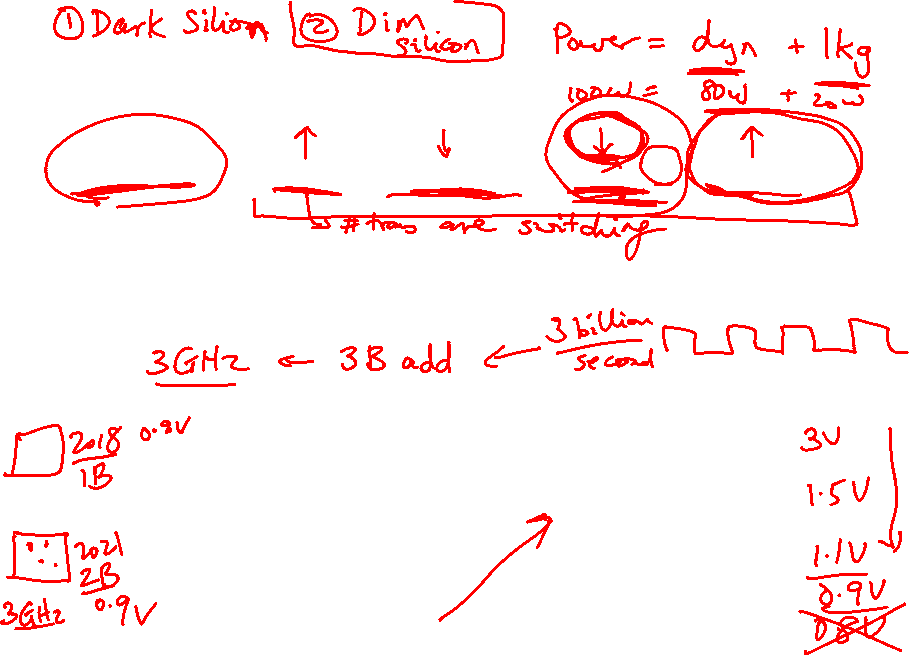 ① Dark Silion
② Dim silicon
Power = dyn + lkg
100W = 80W + 20W
# trans are switching
3GHz ← 3B add ← 3 billion
second
2018 0.9V
1B
2021
2B
3GHz 0.9V
3V
1.5V
1.1V
0.9V
0.8V